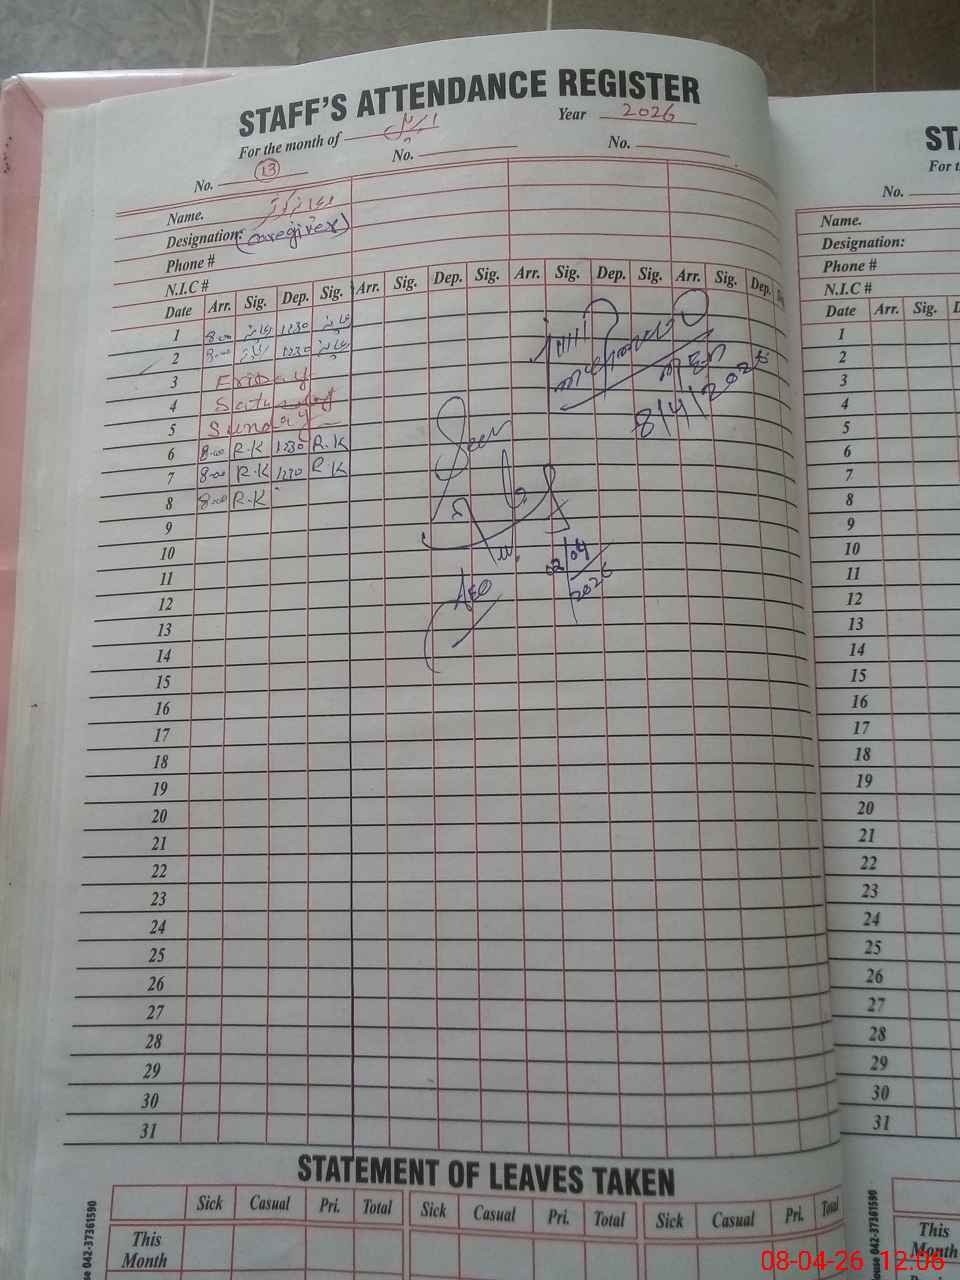 STAFF'S ATTENDANCE REGISTER
For the month of اپریل Year 2026
No. 13 No. No.
Name.
Designation: (Caregiver)
Phone #
N.I.C #
Date Arr. Sig. Dep. Sig. Arr. Sig. Dep. Sig. Arr. Sig. Dep. Sig. Arr. Sig. Dep.
1 8:00 1230
2 8:00 1230
3 Friday
4 Saturday
5 Sunday
6 8:00 R.K 1230 R.K
7 8:00 R.K 1230 R.K
8 8:00 R.K
9
10
11
12
13
14
15
16
17
18
19
20
21
22
23
24
25
26
27
28
29
30
31
8/4/2026
Seen
AEO
02/04/2026
STATEMENT OF LEAVES TAKEN
Sick Casual Pri. Total Sick Casual Pri. Total Sick Casual Pri. Total
This Month
042-37361590
ST
No.
Name.
Designation:
Phone #
N.I.C #
Date Arr. Sig.
1
2
3
4
5
6
7
8
9
10
11
12
13
14
15
16
17
18
19
20
21
22
23
24
25
26
27
28
29
30
31
This Month
042-37361590
08-04-26 12:06